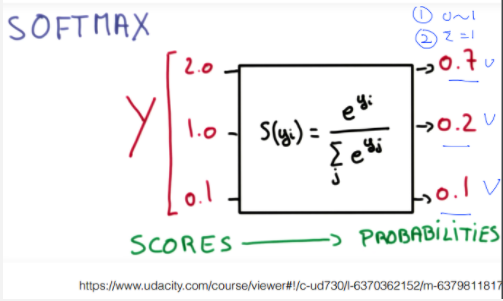 SOFTMAX
① 0~1
② Σ=1
Y
2.0
1.0
0.1
S(yi) = e^yi / Σj e^yj
→0.7 ∨
→0.2 ∨
→0.1 ∨
SCORES → PROBABILITIES
https://www.udacity.com/course/viewer#!/c-ud730/l-6370362152/m-6379811817